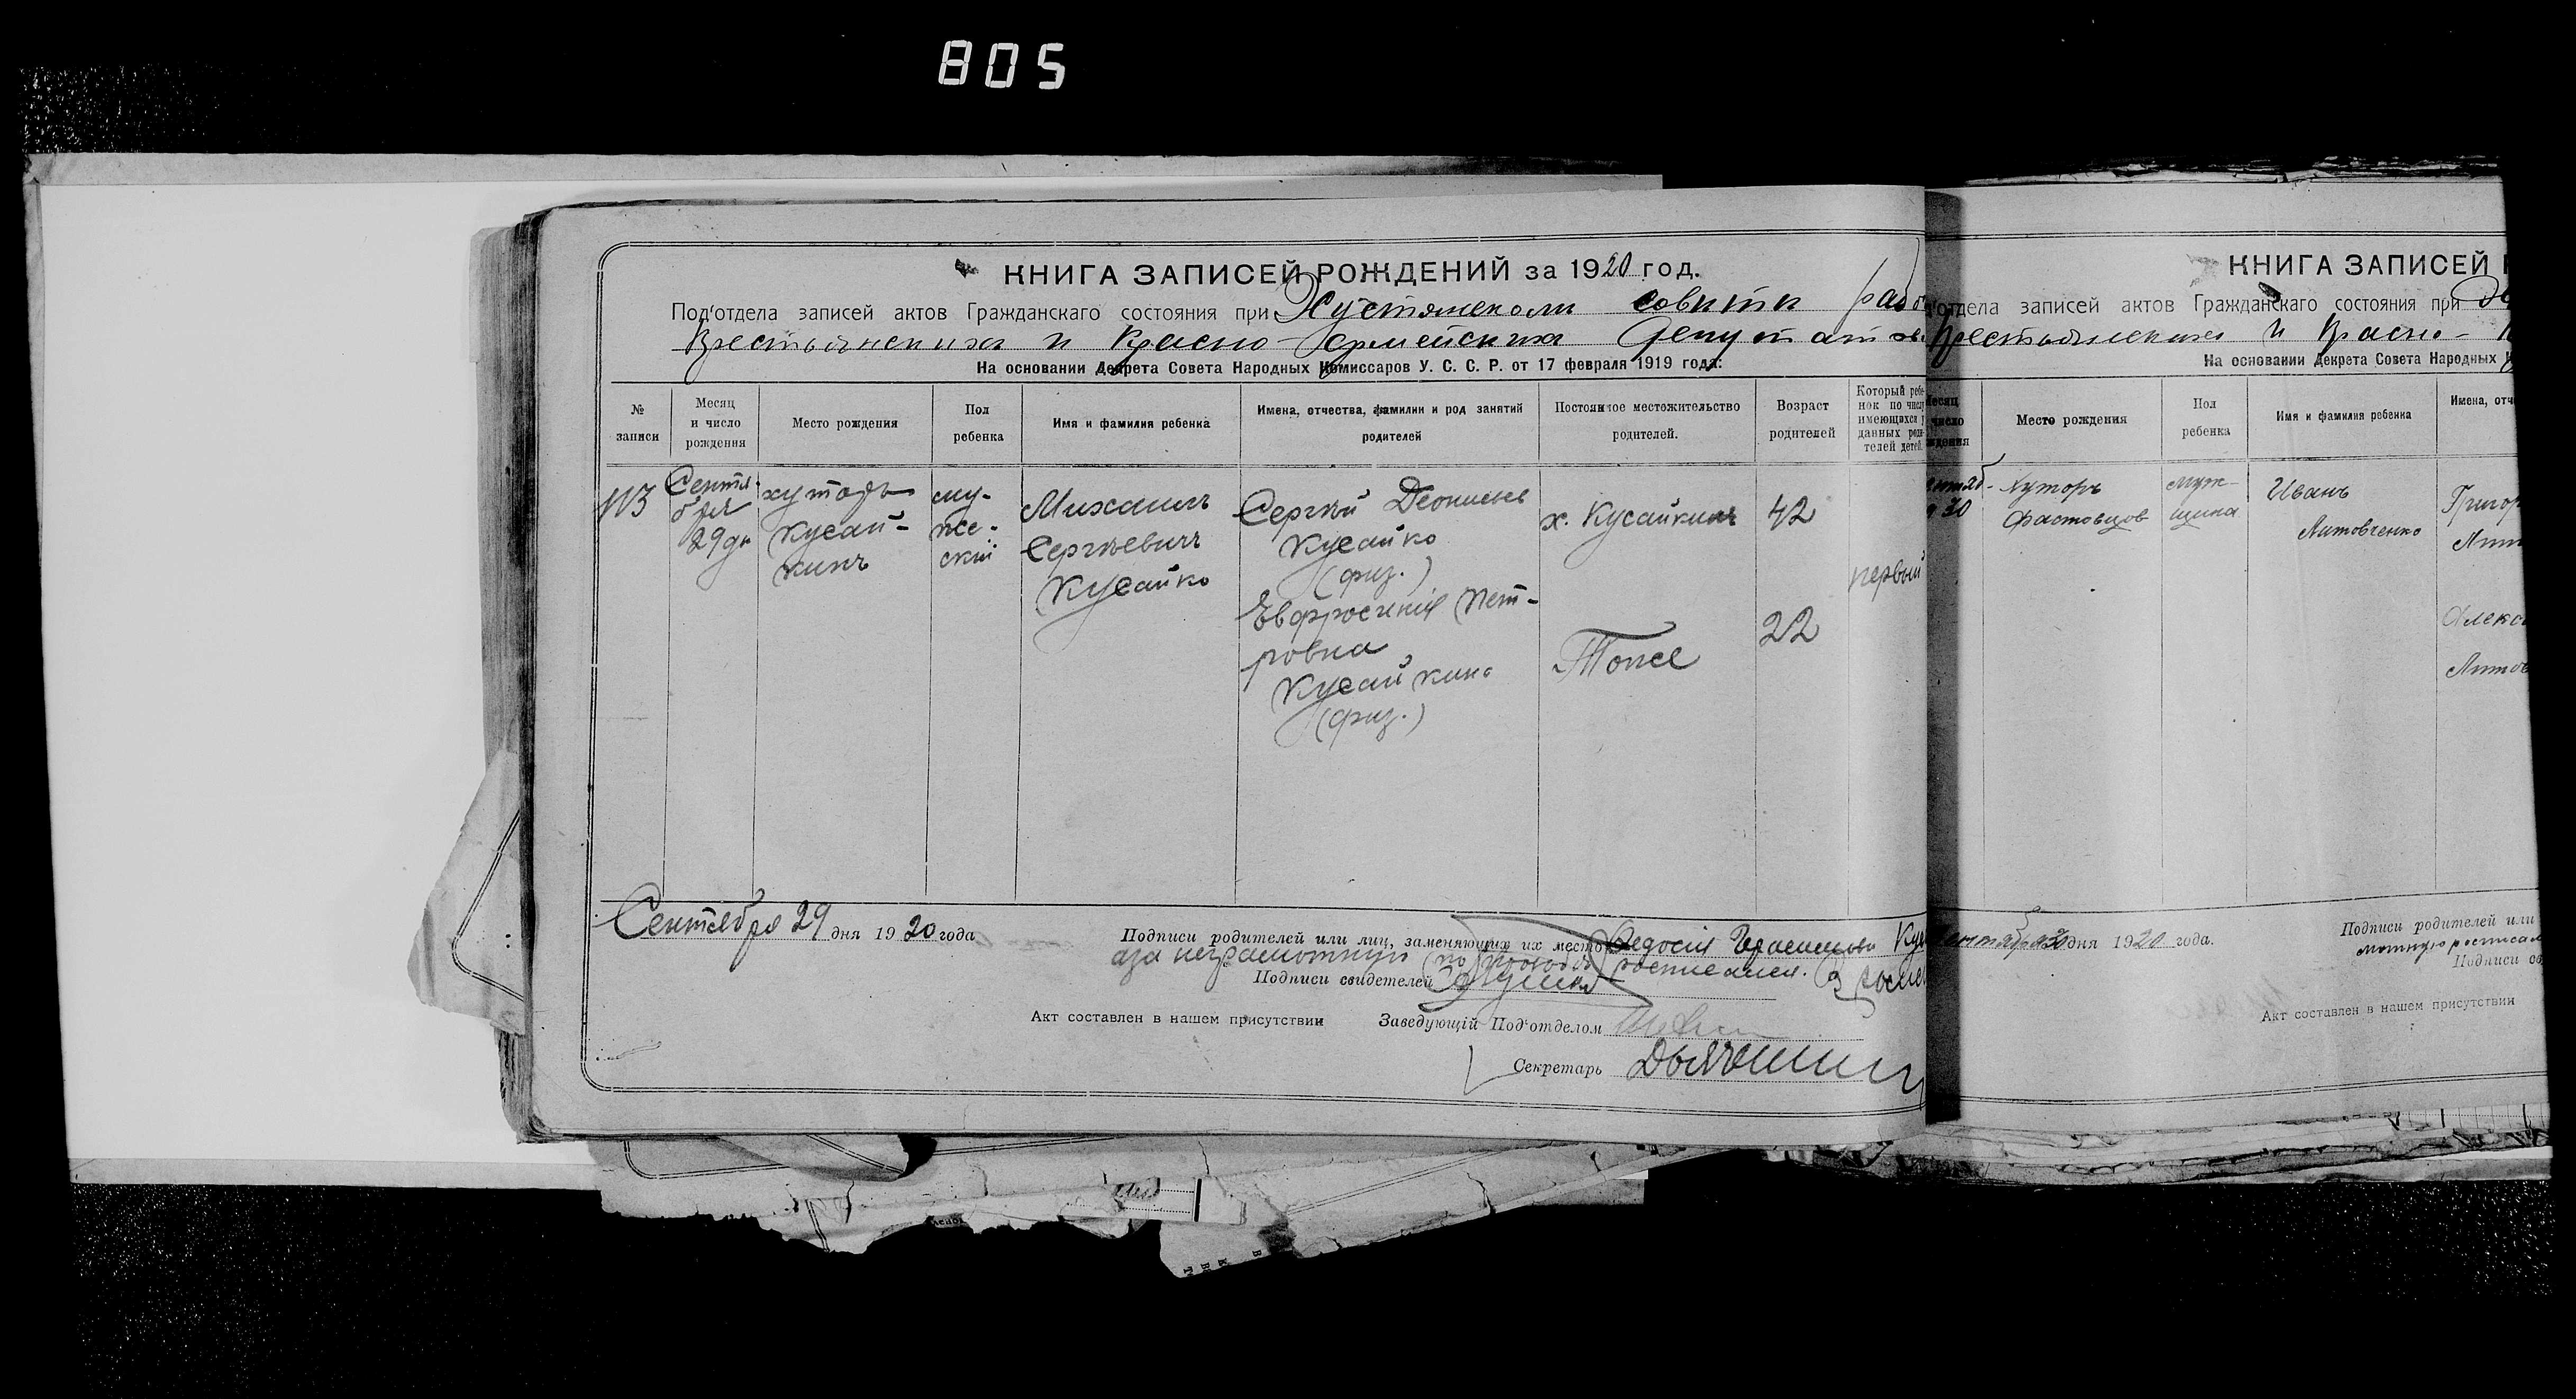 805
КНИГА ЗАПИСЕЙ РОЖДЕНИЙ за 1920 год.
Под'отдела записей актов Гражданскаго состояния при Хустянском совити раб
Крестьянских и Красно-Армейских Депутатов
На основании Декрета Совета Народных Комиссаров У. С. С. Р. от 17 февраля 1919 года.
№ записи
Месяц и число рождения
Место рождения
Пол ребенка
Имя и фамилия ребенка
Имена, отчества, фамилии и род занятий родителей
Постоянное местожительство родителей.
Возраст родителей
Который ребенок по числу имеющихся у данных родителей детей.
113
Сентя-
бря
29 дн
хуторъ
Кусай-
кинъ
му-
же-
ский
Михаилъ
Сергѣевичъ
Кусайко
Сергѣй Деониевъ
Кусайко
(физ.)
Евфросинія Пет-
ровна
Кусайкина
(физ.)
х. Кусайкинъ
Тоже
42
22
первый
Сентября 29 дня 1920 года
Подписи родителей или лиц, заменяющих их место Федосія Герасимова Кус
а за неграмотную росписался.
Подписи свидетелей
Акт составлен в нашем присутствии Заведующій Под'отделом
Секретарь
КНИГА ЗАПИСЕЙ
отдела записей актов Гражданскаго состояния при
Крестьянских и Красно-
На основании Декрета Совета Народных
Место рождения
Пол ребенка
Имя и фамилия ребенка
Имена, отч
30
Хуторъ
Фастовцов
муж-
щина
Иванъ
Литовченко
Григор
Лит
Алекса
Литов
30 дня 1920 года.
Подписи родителей или
мотную росписал
Подписи св
Акт составлен в нашем присутствии